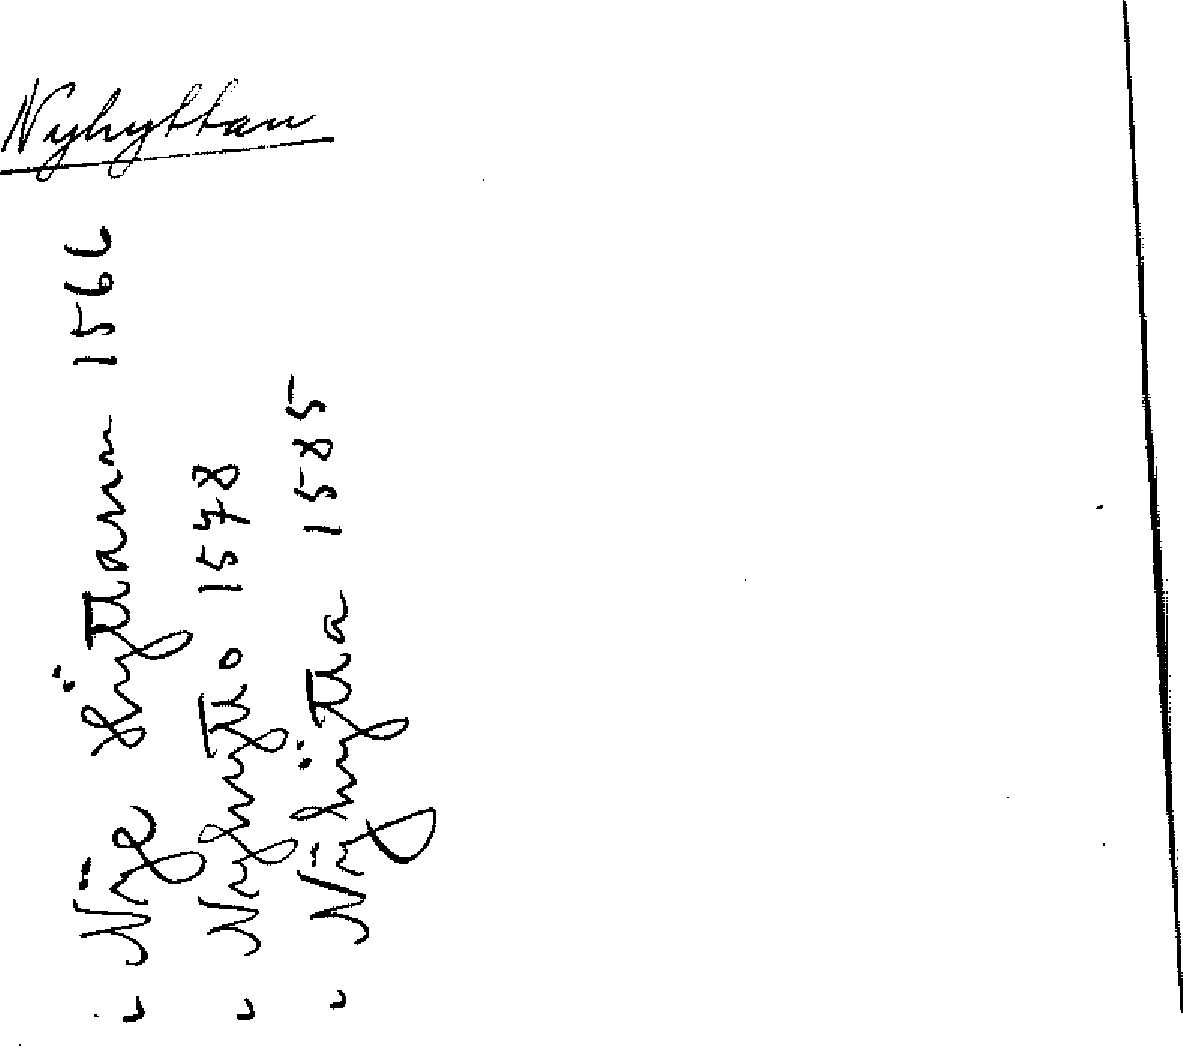 Nyhyttan
i Nÿe hÿttann 1566
i Nyhytto 1578
i Nÿhÿtta 1585